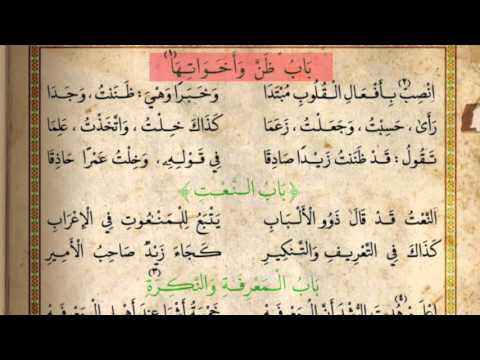 بَابُ ظَنَّ وَأَخَوَاتِهَا (١)
انْصِبْ (٢) بِأَفْعَالِ الْقُلُوبِ مُبْتَدَا وَخَبَرًا وَهْيَ: ظَنَنْتُ، وَجَدَا
رَأَى، حَسِبْتُ، وَجَعَلْتُ، زَعَمَا كَذَاكَ خِلْتُ، وَاتَّخَذْتُ، عَلِمَا
تَقُولُ: قَدْ ظَنَنْتُ زَيْدًا صَادِقَا فِي قَوْلِهِ، وَخِلْتُ عَمْرًا حَاذِقَا
﴿بَابُ النَّعْتِ﴾
النَّعْتُ قَدْ قَالَ ذَوُو الْأَلْبَابِ يَتْبَعُ لِلْمَنْعُوتِ فِي الْإِعْرَابِ
كَذَاكَ فِي التَّعْرِيفِ وَالتَّنْكِيرِ كَجَاءَ زَيْدٌ صَاحِبُ الْأَمِيرِ
بَابُ الْمَعْرِفَةِ (٣) وَالنَّكِرَةِ
اعْلَمْ هُدِيتَ الرُّشْدَ أَنَّ الْمَعْرِفَةْ (٤) خَمْسَةُ أَشْيَا عِنْدَ أَهْلِ الْمَعْرِفَةْ